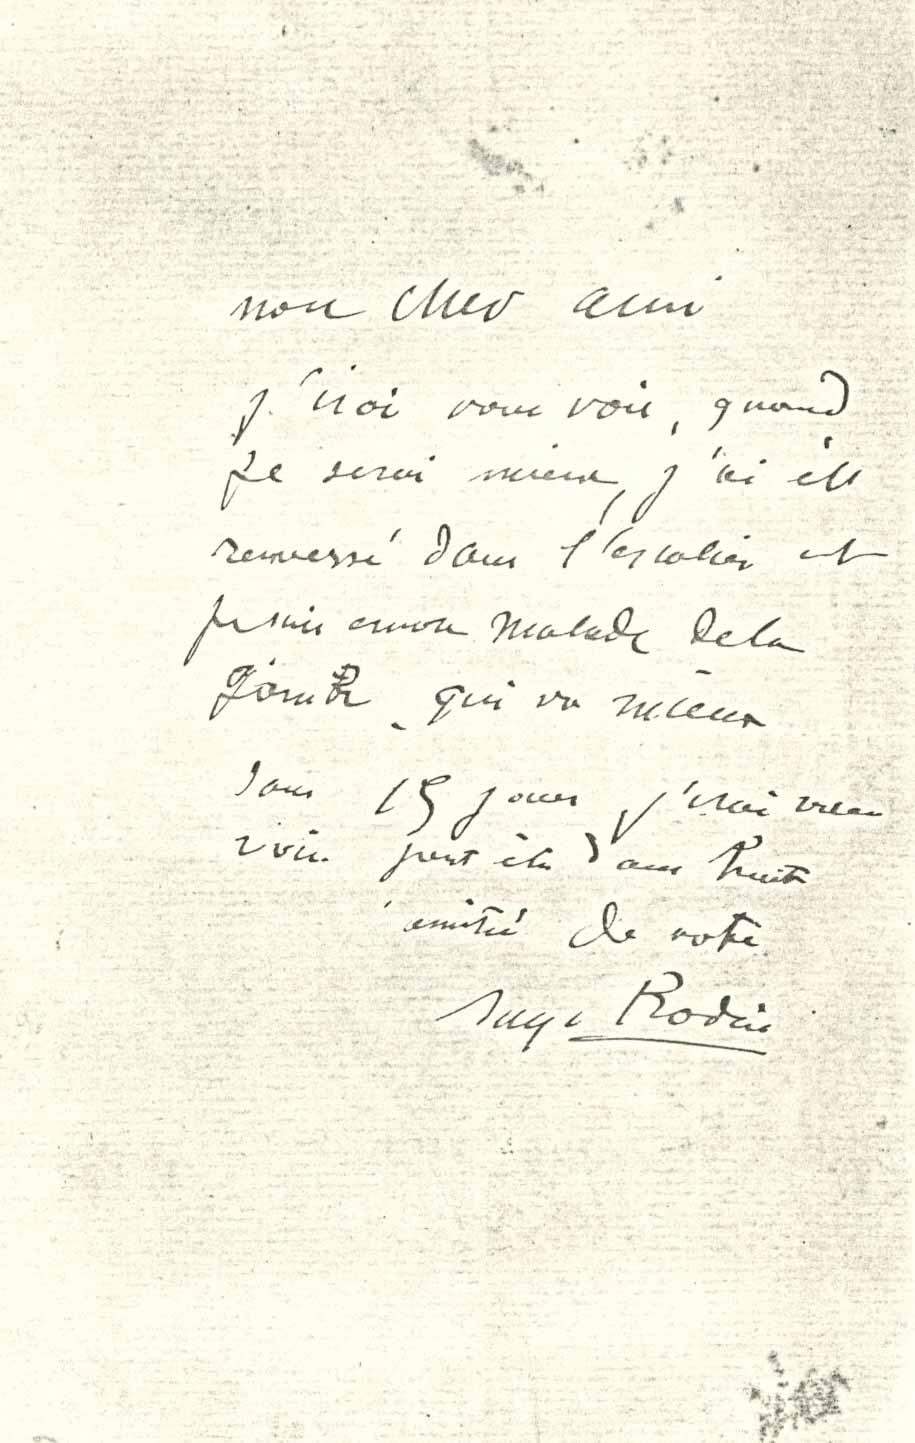 mon cher ami
j'irai vous voir, quand
je serai mieux, j'ai été
renversé dans l'escalier et
je suis encore malade de la
jambe qui va mieux
dans 15 jours j'irai vous
voir peut être dans huit
amitié de votre
Aug Rodin